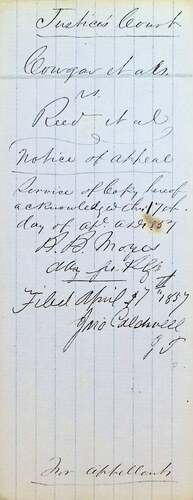 Justice's Court
Cowgar et als
vs.
Reed et al,
Notice of appeal
Service of Copy hereof
acknowledged this 17th
day of ap. A.D. 1857
B. B.
atty for Plffs
Filed April 17th 1857
Jno Caldwell
J P
For appellants